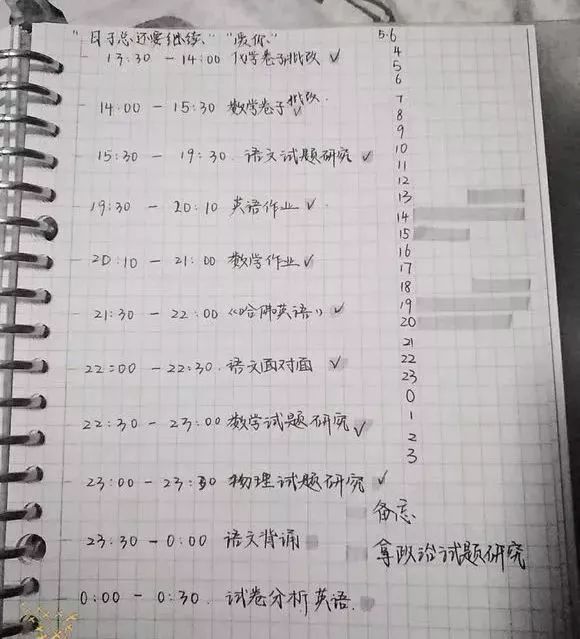 "日子总还要继续." "废你."
5.6
13:30 - 14:00 化学卷子批改 ✓
14:00 - 15:30 数学卷子批改. ✓
15:30 - 19:30. 语文试题研究 ✓
19:30 - 20:10 英语作业 ✓
20:10 - 21:00 数学作业 ✓
21:30 - 22:00 《哈佛英语》 ✓
22:00 - 22:30. 语文面对面 ✓
22:30 - 23:00 数学试题研究 ✓
23:00 - 23:30 物理试题研究 ✓
23:30 - 0:00 语文背诵
0:00 - 0:30. 试卷分析英语.
4
5
6
7
8
9
10
11
12
13
14
15
16
17
18
19
20
21
22
23
0
1
2
3
备忘.
拿政治试题研究